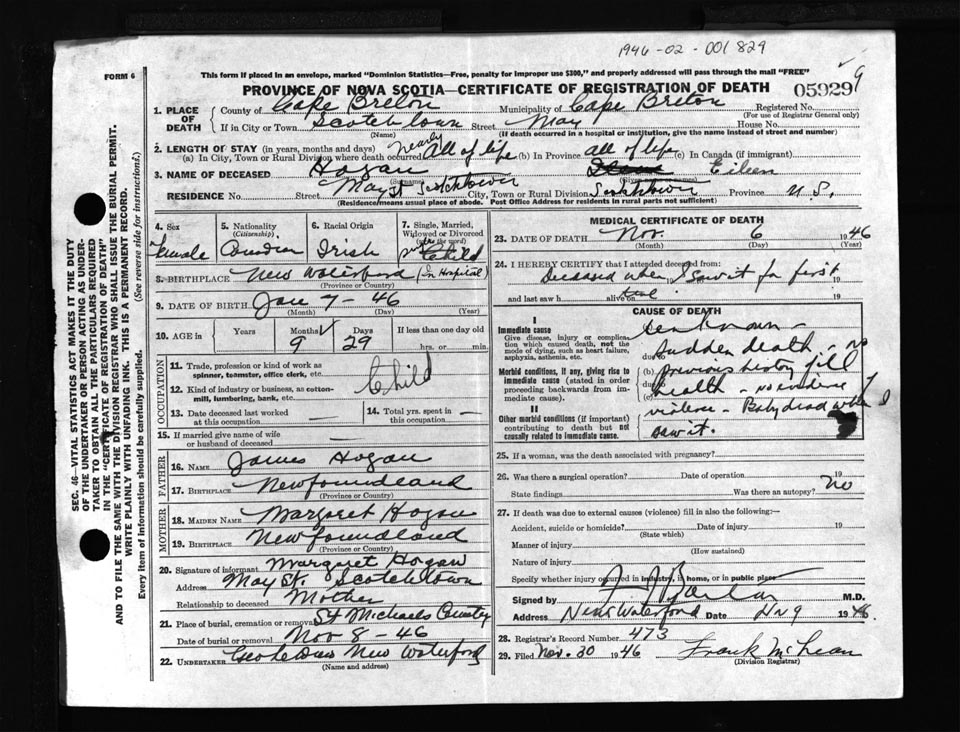 1946-02-001829
FORM 6
This form if placed in an envelope, marked "Dominion Statistics—Free, penalty for improper use $300," and properly addressed will pass through the mail "FREE"
PROVINCE OF NOVA SCOTIA—CERTIFICATE OF REGISTRATION OF DEATH
05929
9
SEC. 46—VITAL STATISTICS ACT MAKES IT THE DUTY
OF THE UNDERTAKER OR PERSON ACTING AS UNDER-
TAKER TO OBTAIN ALL THE PARTICULARS REQUIRED
IN THE "CERTIFICATE OF REGISTRATION OF DEATH"
AND TO FILE THE SAME WITH THE DIVISION REGISTRAR WHO SHALL ISSUE THE BURIAL PERMIT.
WRITE PLAINLY WITH UNFADING INK. THIS IS A PERMANENT RECORD.
Every item of information should be carefully supplied. (See reverse side for instructions.)
1. PLACE OF DEATH
County of Cape Breton Municipality of Cape Breton Registered No.
(For use of Registrar General only)
If in City or Town Scotchtown Street May House No.
(Name) (If death occurred in a hospital or institution, give the name instead of street and number)
2. LENGTH OF STAY (in years, months and days)
(a) In City, Town or Rural Division where death occurred nearly All of life (b) In Province all of life (c) In Canada (if immigrant)
3. NAME OF DECEASED Hogan Eileen
RESIDENCE No. Street May St Scotchtown City, Town or Rural Division Scotchtown Province N.S.
(Residence means usual place of abode. Post Office Address for residents in rural parts not sufficient)
4. Sex Female
5. Nationality (Citizenship)
6. Racial Origin Irish
7. Single, Married, Widowed or Divorced (write the word) Child
8. BIRTHPLACE New Waterford (In Hospital)
(Province or Country)
9. DATE OF BIRTH Jan 7-46
(Month) (Day) (Year)
10. AGE in Years Months 9 Days 29 If less than one day old
hrs. or min.
OCCUPATION
11. Trade, profession or kind of work as spinner, teamster, office clerk, etc. Child
12. Kind of industry or business, as cotton-mill, lumbering, bank, etc.
13. Date deceased last worked at this occupation —
14. Total yrs. spent in this occupation —
15. If married give name of wife or husband of deceased —
FATHER
16. NAME James Hogan
17. BIRTHPLACE Newfoundland
(Province or Country)
MOTHER
18. MAIDEN NAME Margaret Hogan
19. BIRTHPLACE Newfoundland
(Province or Country)
20. Signature of informant Margaret Hogan
Address May St. Scotchtown
Relationship to deceased Mother
21. Place of burial, cremation or removal St Michaels
Date of burial or removal Nov 8-46
22. UNDERTAKER New Waterford
(Name and address)
MEDICAL CERTIFICATE OF DEATH
23. DATE OF DEATH Nov. 6 1946
(Month) (Day) (Year)
24. I HEREBY CERTIFY that I attended deceased from:
Deceased when I saw it for first 19
and last saw h alive on 19
CAUSE OF DEATH
I
Immediate cause
Give disease, injury or complication which caused death, not the mode of dying, such as heart failure, asphyxia, asthenia, etc.
Morbid conditions, if any, giving rise to immediate cause (stated in order proceeding backwards from immediate cause).
II
Other morbid conditions (if important) contributing to death but not causally related to immediate cause.
Unknown -
due to sudden death - no
(b) previous history of ill
due to
(c) health - no evidence of
violence - Baby dead when I
saw it.
25. If a woman, was the death associated with pregnancy?
26. Was there a surgical operation? Date of operation 19
State findings Was there an autopsy? No
27. If death was due to external causes (violence) fill in also the following:—
Accident, suicide or homicide? Date of injury 19
(State which)
Manner of injury
(How sustained)
Nature of injury
Specify whether injury occurred in industry, in home, or in public place
Signed by M.D.
Address New Waterford Date 9 1946
28. Registrar's Record Number 473
29. Filed Nov. 30 1946 Frank McLean
(Division Registrar)